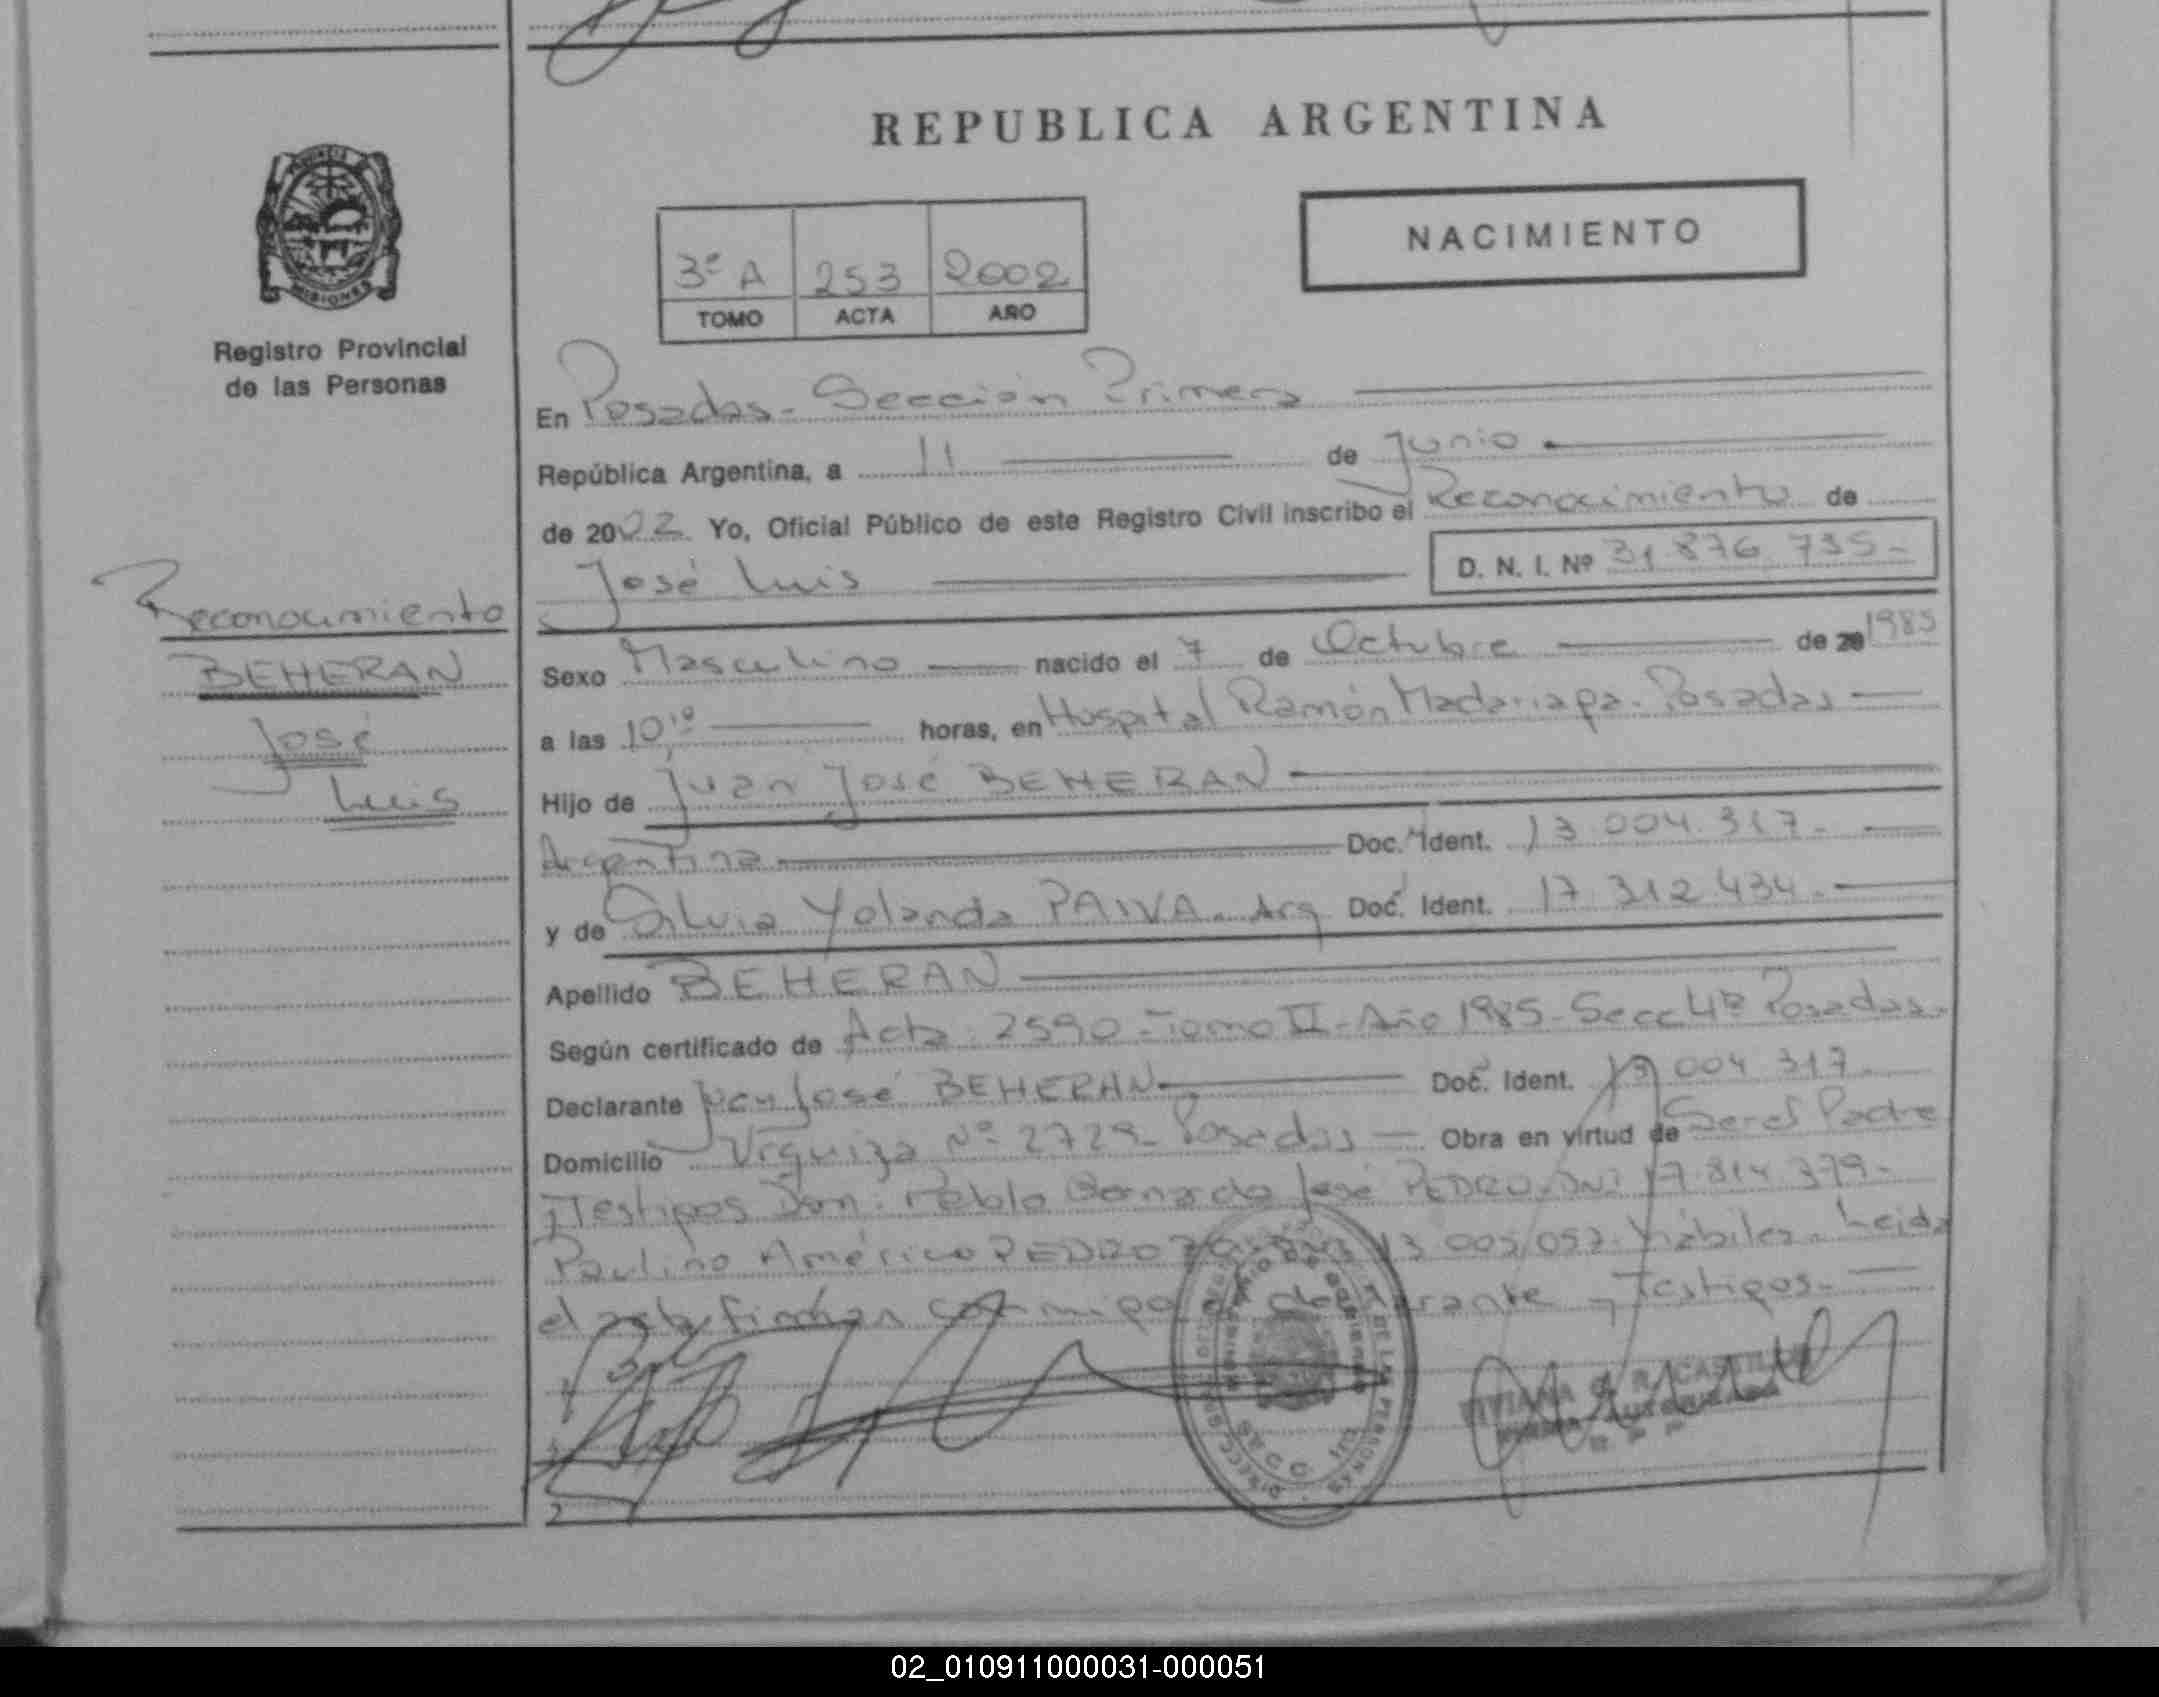 REPUBLICA ARGENTINA
NACIMIENTO
3º A 253 2002
TOMO ACTA AÑO
PROVINCIA
MISIONES
Registro Provincial
de las Personas
En Posadas - Sección Primera
República Argentina, a 11 de Junio
de 2002 Yo, Oficial Público de este Registro Civil inscribo el Reconocimiento de
José Luis D. N. I. Nº 31.876.735-
Reconocimiento
BEHERAN
José
Luis
Sexo Masculino nacido el 7 de Octubre de 20 1985
a las 10 10 horas, en Hospital Ramón Madariaga - Posadas
Hijo de Juan José BEHERAN
Argentina Doc. Ident. 13.004.317-
y de Silvia Yolanda PAIVA - Arg Doc. Ident. 17.312.434-
Apellido BEHERAN
Según certificado de Acta 2590 - Tomo II - Año 1985 - Secc 4ta Posadas-
Declarante Juan José BEHERAN Doc. Ident. 13 004 317
Domicilio Urquiza Nº 2729 - Posadas Obra en virtud de Ser el Padre
y Testigos Don: Pablo Bernardo José PEDROZO DNI 17.814.379-
Paulino Américo PEDROZO 13 005 057 - hábiles - Leida
el acta firman conmigo declarante y Testigos-
VIVIANA R. CASTILLO
02_010911000031-000051